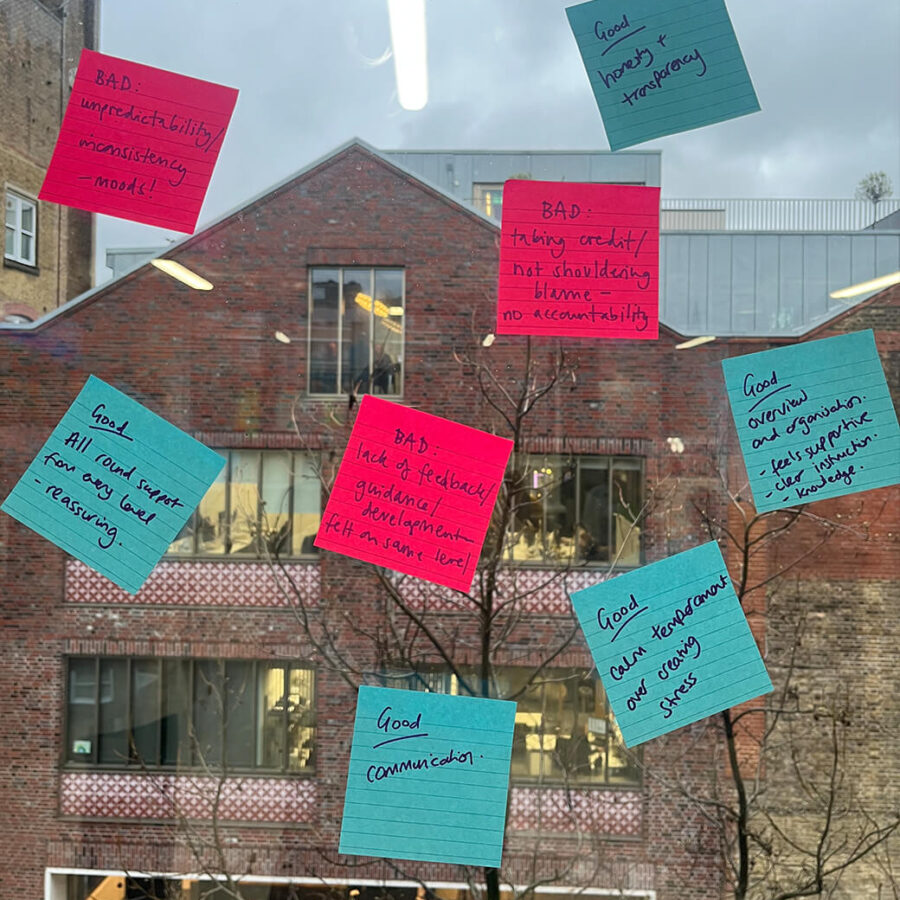 Good
honesty +
transparency
BAD:
unpredictability/
inconsistency
- moods!
BAD:
taking credit/
not shouldering
blame -
no accountability
Good
overview
and organisation.
- feels supportive
- clear instruction.
- knowledge.
Good
All round support
from every level
- reassuring.
BAD:
lack of feedback/
guidance/
development
felt on same level
Good
calm temperament
over creating
stress
Good
communication.